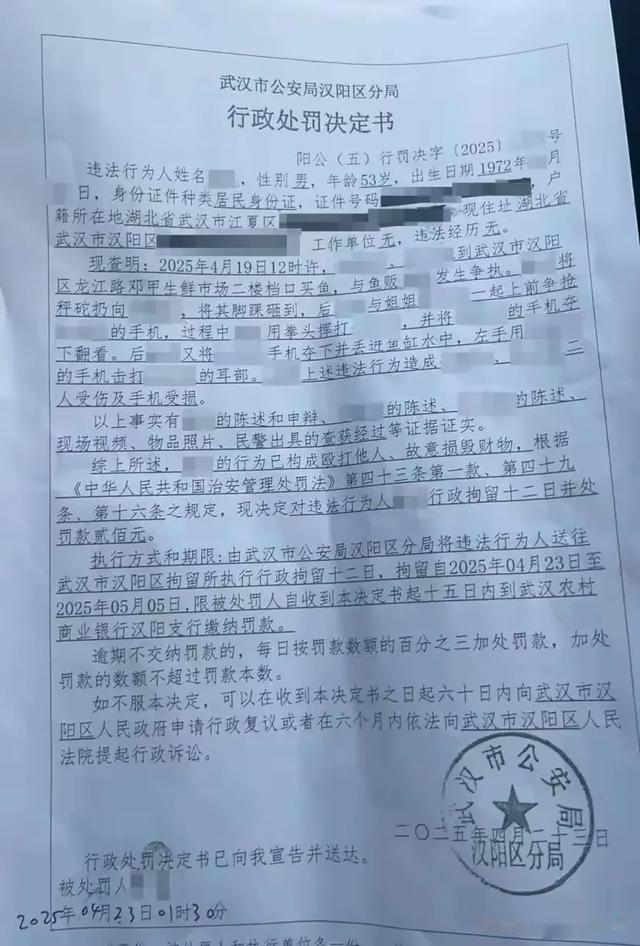 武汉市公安局汉阳区分局
行政处罚决定书
阳公（五）行罚决字〔2025〕 号
违法行为人姓名 ，性别男，年龄53岁，出生日期1972年 月
日，身份证件种类居民身份证，证件号码 ，户
籍所在地湖北省武汉市江夏区 现住址湖北省
武汉市汉阳区 工作单位无，违法经历无。
现查明：2025年4月19日12时许， 到武汉市汉阳
区龙江路邓甲生鲜市场二楼档口买鱼，与鱼贩 发生争执。 将
秤砣扔向 ，将其脚踝砸到，后 与姐姐 一起上前争抢
的手机，过程中 用拳头挥打 ，并将 的手机夺
下翻看。后 又将 手机夺下并丢进鱼缸水中，左手用
的手机击打 的耳部。 上述违法行为造成 二
人受伤及手机受损。
以上事实有 的陈述和申辩、 的陈述、 的陈述、
现场视频、物品照片、民警出具的查获经过等证据证实。
综上所述， 的行为已构成殴打他人、故意损毁财物，根据
《中华人民共和国治安管理处罚法》第四十三条第一款、第四十九
条、第十六条之规定，现决定对违法行为人 行政拘留十二日并处
罚款贰佰元。
执行方式和期限：由武汉市公安局汉阳区分局将违法行为人送往
武汉市汉阳区拘留所执行行政拘留十二日，拘留自2025年04月23日至
2025年05月05日，限被处罚人自收到本决定书起十五日内到武汉农村
商业银行汉阳支行缴纳罚款。
逾期不交纳罚款的，每日按罚款数额的百分之三加处罚款，加处
罚款的数额不超过罚款本数。
如不服本决定，可以在收到本决定书之日起六十日内向武汉市汉
阳区人民政府申请行政复议或者在六个月内依法向武汉市汉阳区人民
法院提起行政诉讼。
武汉市公安局
汉阳区分局
二〇二五年四月二十三日
行政处罚决定书已向我宣告并送达。
被处罚人
2025年04月23日01时30分